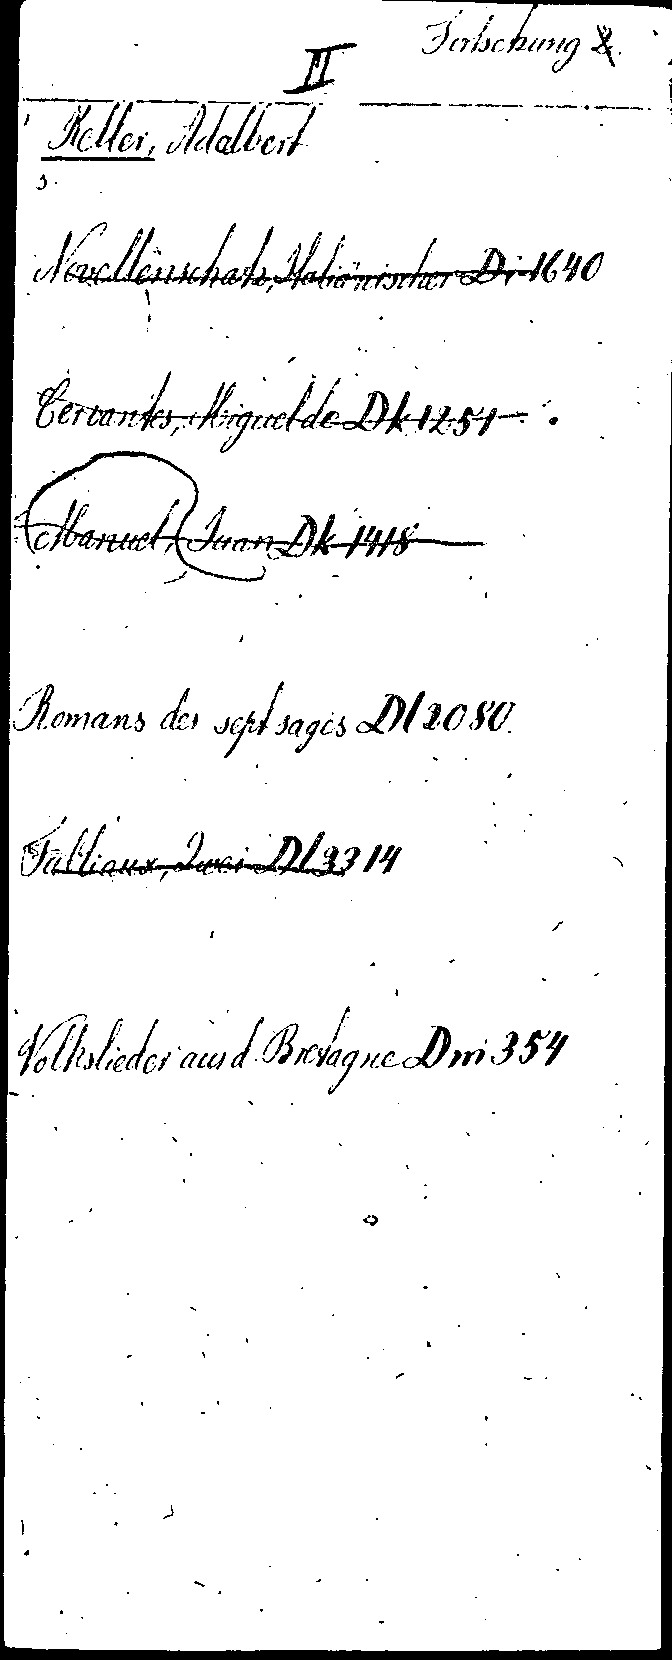 Fortsetzung 2.
II
Keller, Adalbert
s.
Novellenschatz, Italiänischer Di 1640
Cervantes, Miguel de Dk 1251
Manuel, Juan Dk 1418
Romans des sept sages Dl 2080.
Fabliaux, Zwei Dl 3314
Volkslieder aus d. Bretagne Dm 354